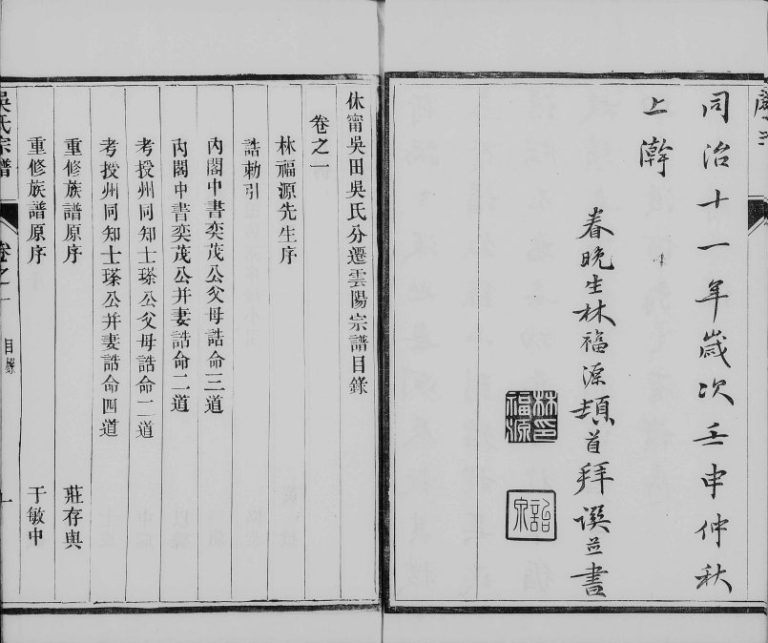 同治十一年歲次壬申仲秋
上澣
春晚生林福源頓首拜譔並書
林印
福源
休甯吳田吳氏分遷雲陽宗譜目錄
卷之一
林福源先生序
誥勅引
內閣中書奕茂公父母誥命三道
內閣中書奕茂公并妻誥命二道
考授州同知士琢公父母誥命二道
考授州同知士琢公并妻誥命四道
重修族譜原序 莊存與
重修族譜原序 于敏中
吳氏宗譜 卷之一 目錄 一